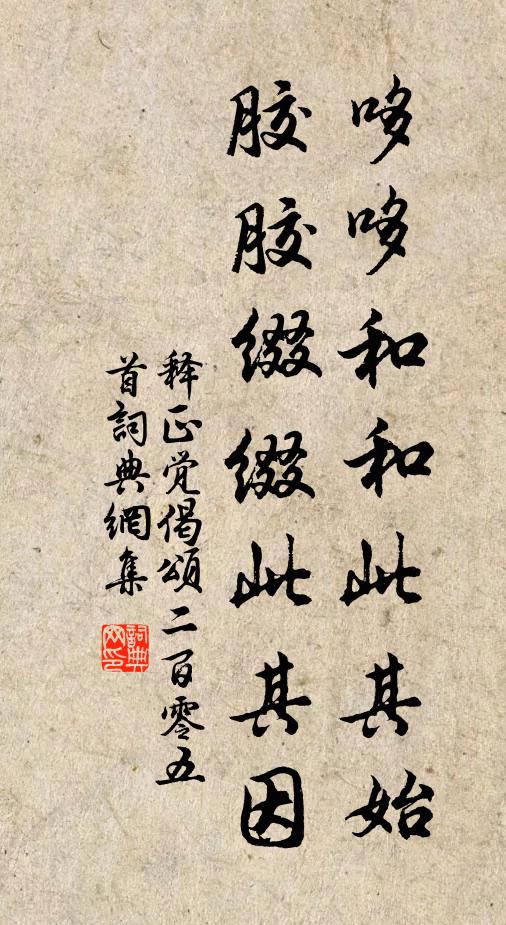 哆哆和和此其始
胶胶缀缀此其因
释正觉偈颂二百零五
首詞典網集
詞典网印